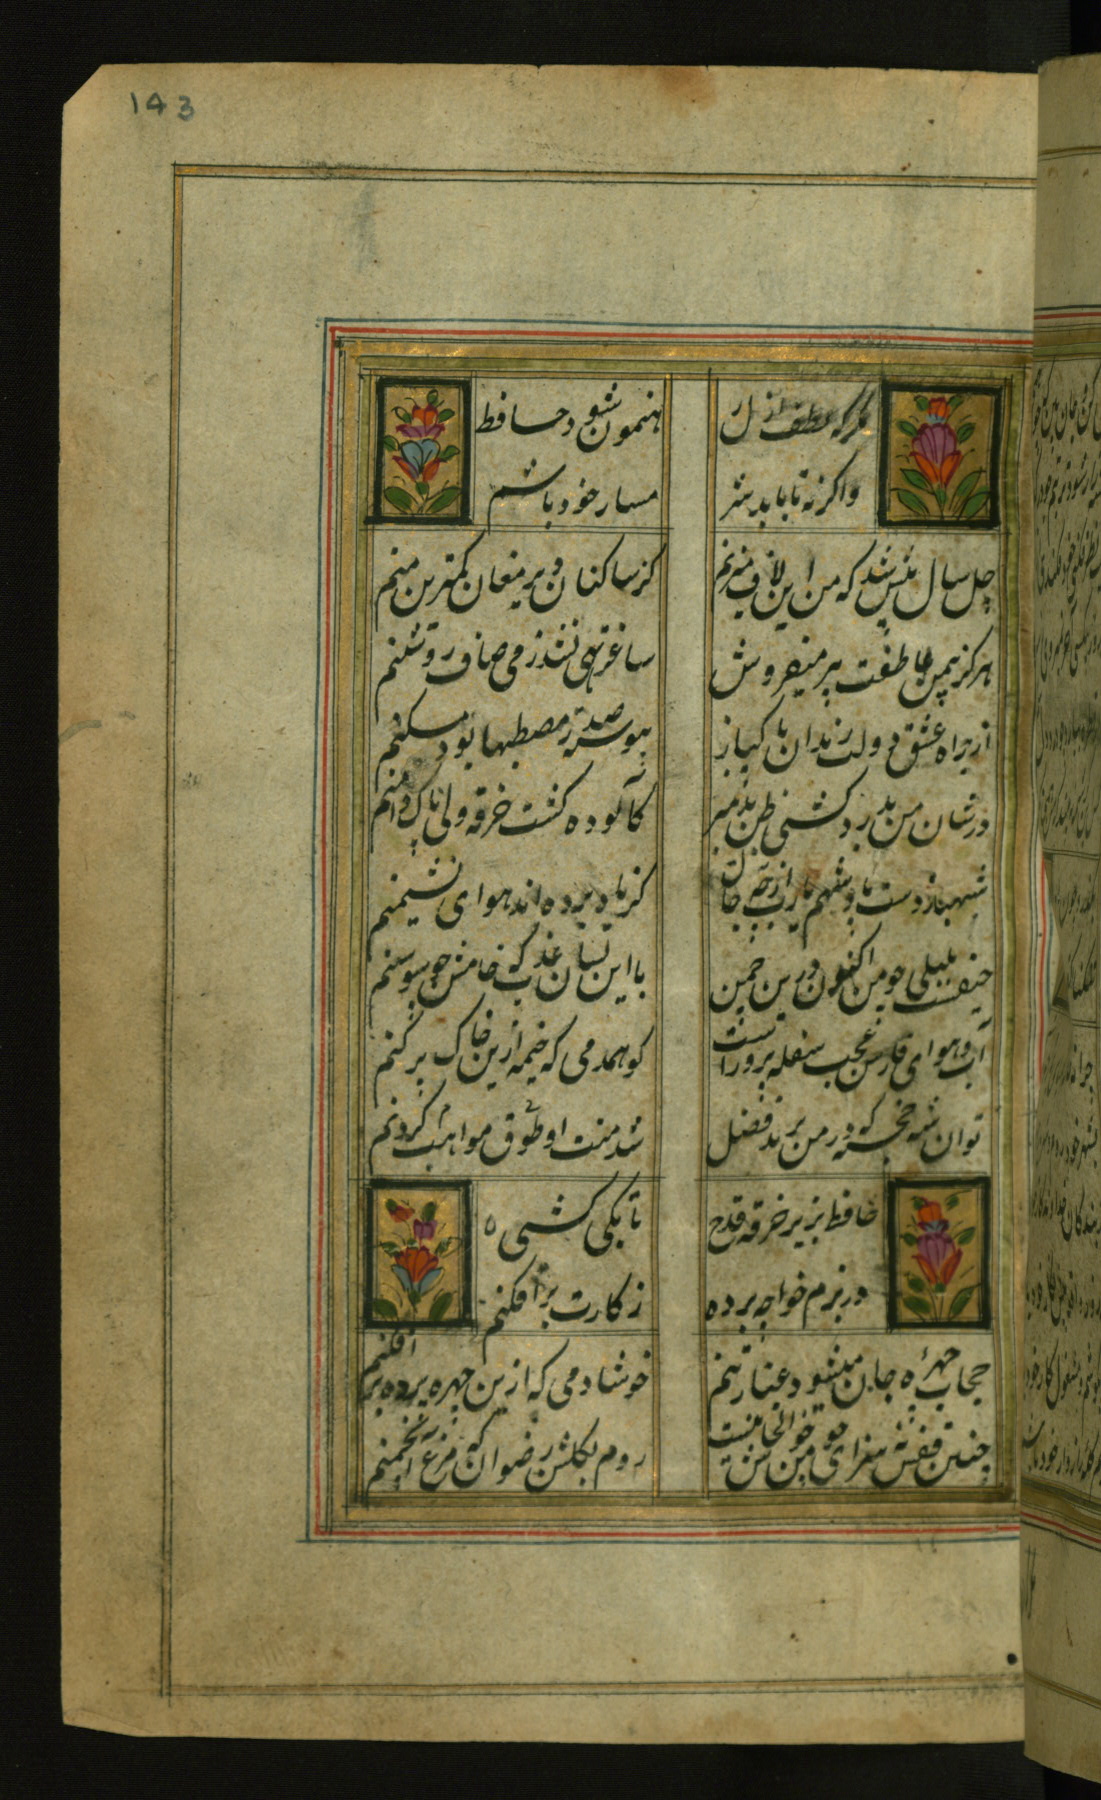 143
مکر که لطف ازل ر
هنمون شود حافظ
واکرنه تا بابد شر
مسار خود باشم
چل سال بیش شد که من این لاف میزنم
کز ساکنان دیر مغان کمترین منم
هرکز بیمن عاطفت پیر میفروش
ساغر تهی نشد ز می صاف روشنم
از جاه عشق و دولت رندان پاکباز
پیوسته صدر مصطبها بود مسکنم
در شان من بدرد کشی ظن بد مبر
کآلوده کشت خرقه ولی پاک دامنم
شهباز دست پادشهم یارب از چه حال
کز یاد برده اند هوای نشیمنم
حیفست بلبلی چو من اکنون درین چمن
با این لسان عذب که خامش چو سوسنم
آب و هوای فارس عجب سفله پرور است
کو همدمی که خیمه ازین خاک بر کنم
توران شه خجسته که در من یزید فضل
شد منت او طوق مواهب کردنم
حافظ بزیر خرقه قدح
تا بکی کشی
در بزم خواجه پرده
ز کارت بر افکنم
حجاب چهره جان میشود غبار تنم
خوشا دمی که ازین چهره پرده بر افکنم
چنین قفس نه سزای چو من خوش الحانیست
روم بکلشن رضوان که مرغ آن چمنم